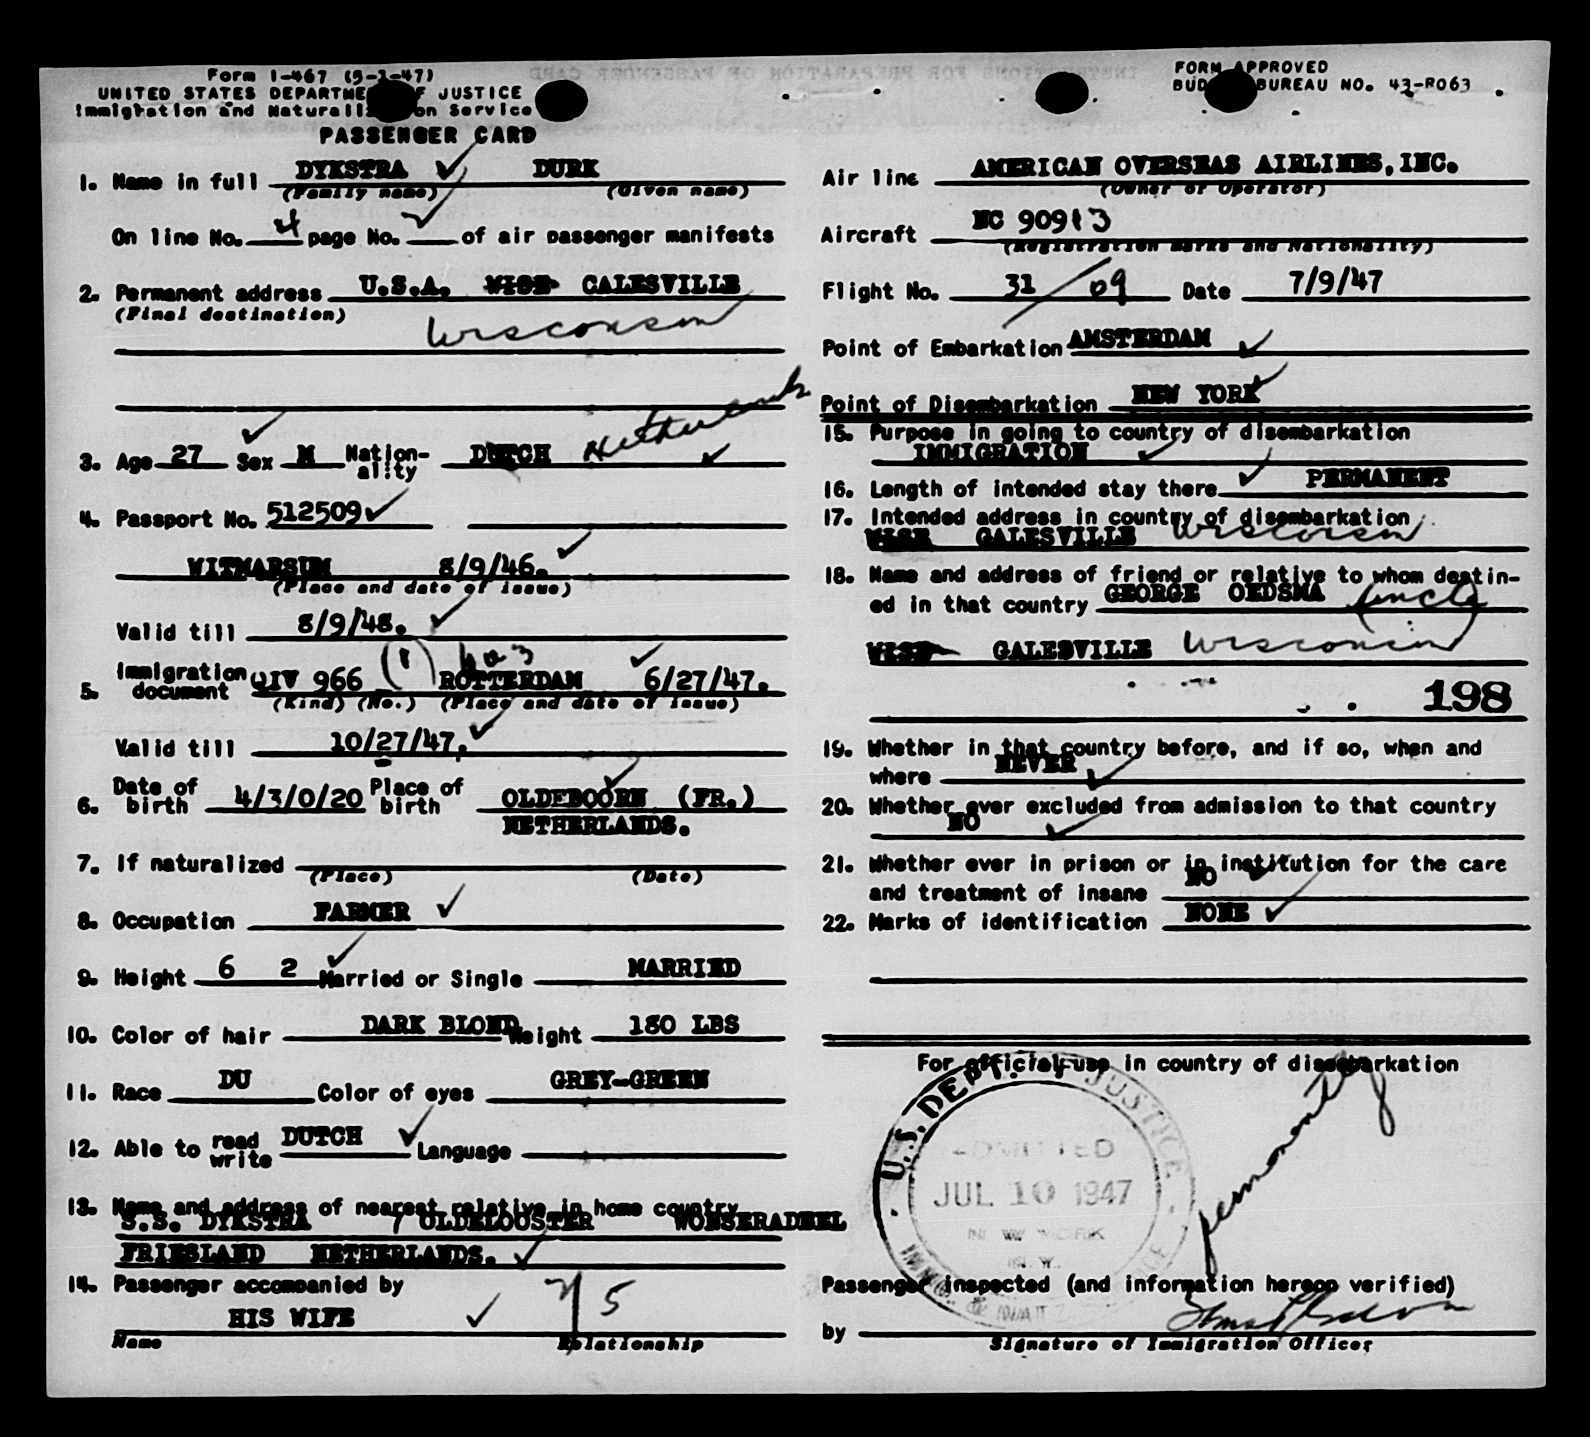 Form I-467 (5-1-47)
UNITED STATES DEPARTMENT OF JUSTICE
Immigration and Naturalization Service
PASSENGER CARD
FORM APPROVED
BUDGET BUREAU NO. 43-R063
1. Name in full DYKSTRA DURK
(Family name) (Given name)
On line No. 4 page No. of air passenger manifests
2. Permanent address U.S.A. WISE GALESVILLE
(Final destination)
Wisconsin
3. Age 27 Sex M Nation-ality DUTCH Netherlands
4. Passport No. 512509
WITMARSUM 8/9/46.
(Place and date of issue)
Valid till 8/9/48.
5. Immigration document QIV 966 (1) ROTTERDAM 6/27/47.
(Kind) (No.) (Place and date of issue)
Valid till 10/27/47.
6. Date of birth 4/3/0/20 Place of birth OLDEBOORN (FR.)
NETHERLANDS.
7. If naturalized
(Place) (Date)
8. Occupation FARMER
9. Height 6 2 Married or Single MARRIED
10. Color of hair DARK BLOND Weight 180 LBS
11. Race DU Color of eyes GREY-GREEN
12. Able to read write DUTCH Language
13. Name and address of nearest relative in home country
S.S. DYKSTRA / OLDELOOSTER WONSERADEEL
FRIESLAND NETHERLANDS.
14. Passenger accompanied by
HIS WIFE 5
Name Relationship
Air line AMERICAN OVERSEAS AIRLINES, INC.
(Owner or Operator)
Aircraft NC 90913
(Registration marks and Nationality)
Flight No. 31 / 09 Date 7/9/47
Point of Embarkation AMSTERDAM
Point of Disembarkation NEW YORK
15. Purpose in going to country of disembarkation
IMMIGRATION
16. Length of intended stay there PERMANENT
17. Intended address in country of disembarkation
WISE GALESVILLE Wisconsin
18. Name and address of friend or relative to whom destin-
ed in that country GEORGE OEDSMA (uncle)
WISE GALESVILLE Wisconsin
198
19. Whether in that country before, and if so, when and
where NEVER
20. Whether ever excluded from admission to that country
NO
21. Whether ever in prison or in institution for the care
and treatment of insane NO
22. Marks of identification NONE
For official use in country of disembarkation
U.S. DEPT. OF JUSTICE
ADMITTED
JUL 10 1947
NEW YORK
N.Y.
permanently
Passenger inspected (and information hereon verified)
by
Signature of Immigration Officer